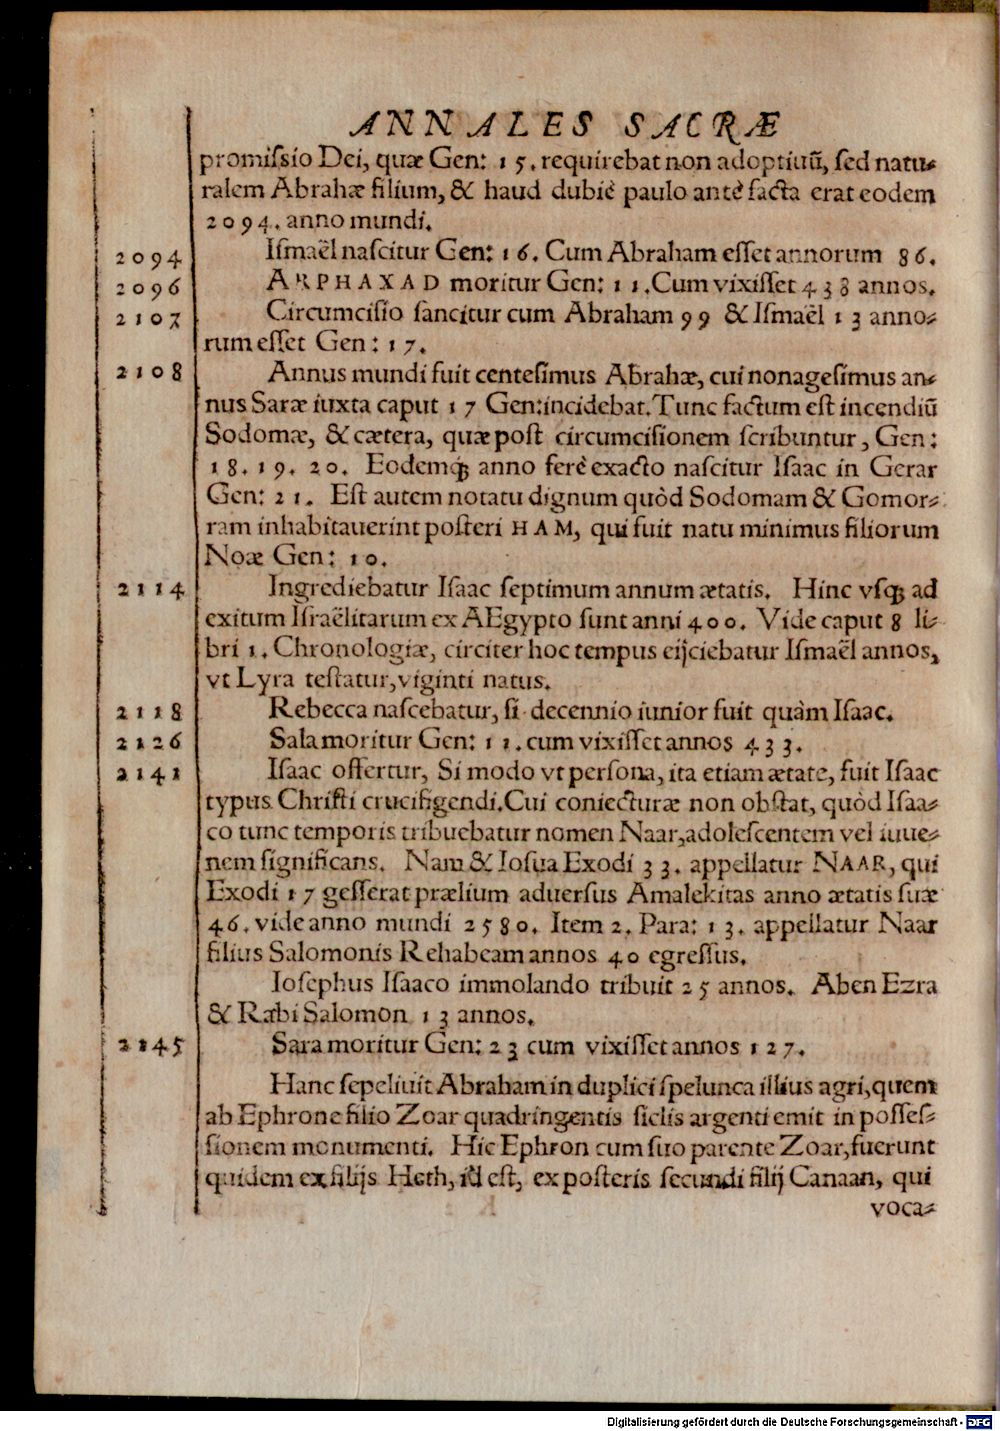 ANNALES SACRÆ
promiſsio Dei, quæ Gen: 15. requirebat non adoptiuũ, ſed natu-
ralem Abrahæ filium, & haud dubiè paulo antè facta erat eodem
2094. anno mundi.
2094 Iſmaël naſcitur Gen: 16. Cum Abraham eſſet annorum 86.
2096 ARPHAXAD moritur Gen: 11. Cum vixiſſet 438 annos.
2107 Circumciſio ſancitur cum Abraham 99 & Iſmaël 13 anno-
rum eſſet Gen: 17.
2108 Annus mundi fuit centeſimus Abrahæ, cui nonageſimus an-
nus Saræ iuxta caput 17 Gen: incidebat. Tunc factum eſt incendiũ
Sodomæ, & cætera, quæ poſt circumciſionem ſcribuntur, Gen:
18. 19. 20. Eodemq; anno ferè exacto naſcitur Iſaac in Gerar
Gen: 21. Eſt autem notatu dignum quòd Sodomam & Gomor-
ram inhabitauerint poſteri HAM, qui fuit natu minimus filiorum
Noæ Gen: 10.
2114 Ingrediebatur Iſaac ſeptimum annum ætatis. Hinc vſq; ad
exitum Iſraëlitarum ex AEgypto ſunt anni 400. Vide caput 8 li-
bri 1. Chronologiæ, circiter hoc tempus eijciebatur Iſmaël annos,
vt Lyra teſtatur, viginti natus.
2118 Rebecca naſcebatur, ſi decennio iunior fuit quàm Iſaac.
2126 Sala moritur Gen: 11. cum vixiſſet annos 433.
2141 Iſaac offertur, Si modo vt perſona, ita etiam ætate, fuit Iſaac
typus Chriſti crucifigendi. Cui coniecturæ non obſtat, quòd Iſaa-
co tunc temporis tribuebatur nomen Naar, adoleſcentem vel iuue-
nem ſignificans. Nam & Ioſua Exodi 33. appellatur NAAR, qui
Exodi 17 geſſerat prælium aduerſus Amalekitas anno ætatis ſuæ
46. vide anno mundi 2580. Item 2. Para: 13. appellatur Naar
filius Salomonis Rehabeam annos 40 egreſſus.
Ioſephus Iſaaco immolando tribuit 25 annos. Aben Ezra
& Rabi Salomon 13 annos.
2145 Sara moritur Gen: 23 cum vixiſſet annos 127.
Hanc ſepeliuit Abraham in duplici ſpelunca illius agri, quem
ab Ephrone filio Zoar quadringentis ſiclis argenti emit in poſſeſ-
ſionem monumenti. Hic Ephron cum ſuo parente Zoar, fuerunt
quidem ex filijs Heth, id eſt, ex poſteris ſecundi filij Canaan, qui
voca-
Digitalisierung gefördert durch die Deutsche Forschungsgemeinschaft - DFG